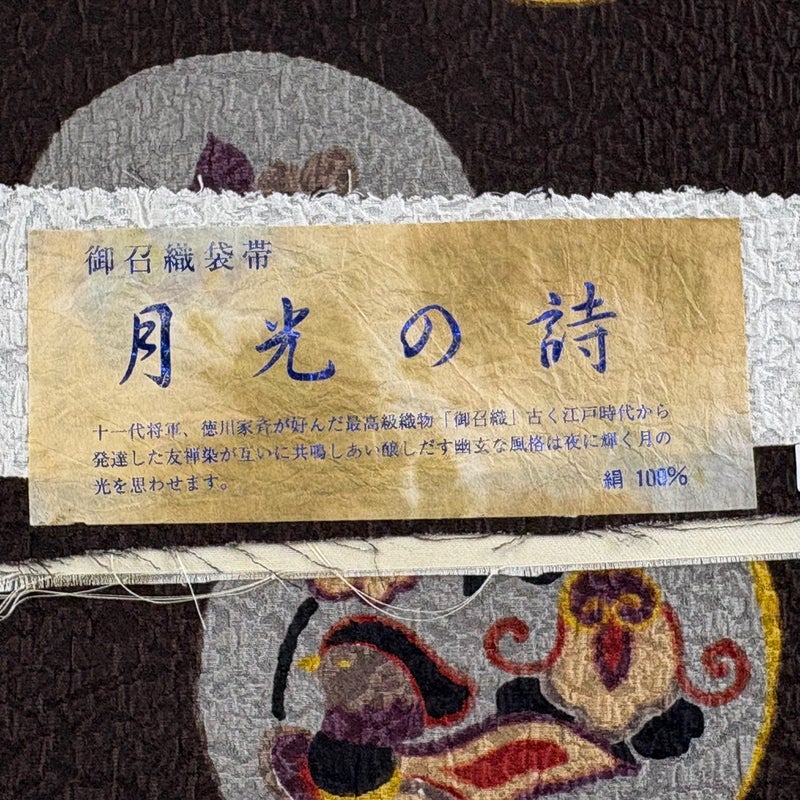 御召織袋帯
月光の詩
十一代将軍、徳川家斉が好んだ最高級織物「御召織」古く江戸時代から
発達した友禅染が互いに共鳴しあい醸しだす幽玄な風格は夜に輝く月の
光を思わせます。
絹 100%